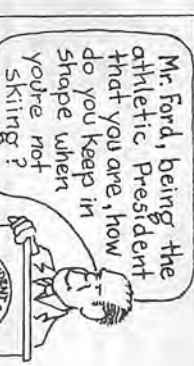 Mr. Ford, being the
athletic President
that you are, how
do you keep in
shape when
you're not
skiing?